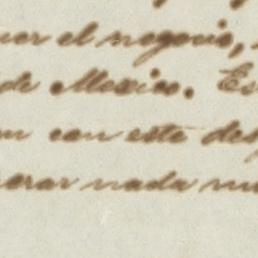 el negocio,
de Mexico. Es
con este des
nada